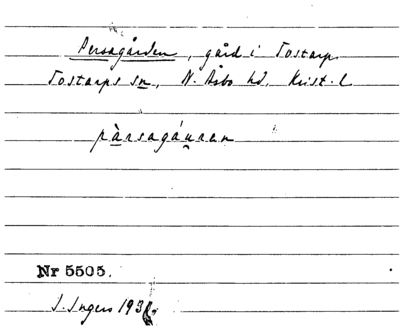 Persagården, gård i Tostarp
Tostarps sn, N. Åsbo hd, Krist. l
pàrsagáuran
Nr 5505.
I. Ingers 193